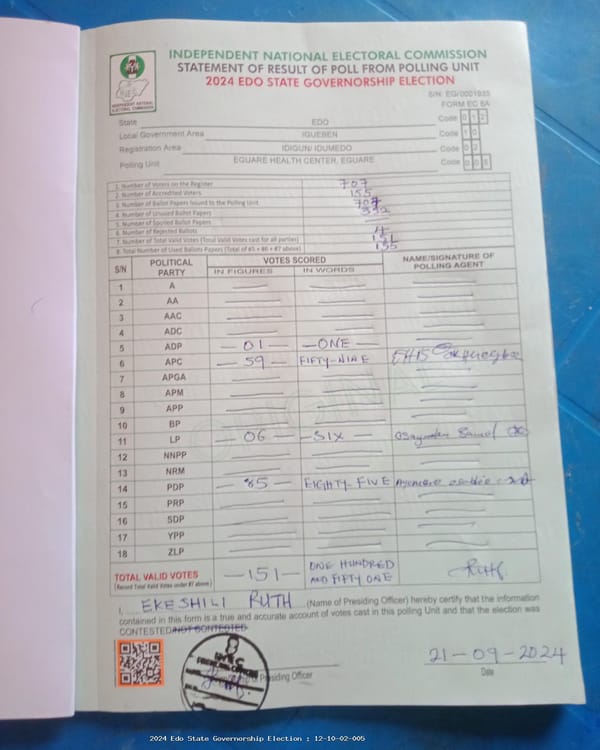 INDEPENDENT NATIONAL ELECTORAL COMMISSION
STATEMENT OF RESULT OF POLL FROM POLLING UNIT
2024 EDO STATE GOVERNORSHIP ELECTION
INEC
INDEPENDENT NATIONAL ELECTORAL COMMISSION
S/N: EG/0001935
FORM EC 8A
State EDO Code 0 1 2
Local Government Area IGUEBEN Code 1 0
Registration Area IDIGUN/ IDUMEDO Code 0 2
Polling Unit EGUARE HEALTH CENTER, EGUARE Code 0 0 5
1. Number of Voters on the Register 707
2. Number of Accredited Voters 155
3. Number of Ballot Papers Issued to the Polling Unit 707
4. Number of Unused Ballot Papers 552
5. Number of Spoiled Ballot Papers
6. Number of Rejected Ballots 4
7. Number of Total Valid Votes (Total Valid Votes cast for all parties) 151
8. Total Number of Used Ballots Papers (Total of #5 + #6 + #7 above) 155
S/N POLITICAL PARTY VOTES SCORED NAME/SIGNATURE OF POLLING AGENT
IN FIGURES IN WORDS
1 A
2 AA
3 AAC
4 ADC
5 ADP 01 ONE
6 APC 59 FIFTY-NINE EHIS
7 APGA
8 APM
9 APP
10 BP
11 LP 06 SIX
12 NNPP
13 NRM
14 PDP 85 EIGHTY-FIVE
15 PRP
16 SDP
17 YPP
18 ZLP
TOTAL VALID VOTES 151 ONE HUNDRED AND FIFTY ONE
(Record Total Valid Votes under #7 above)
I, EKESHILI RUTH (Name of Presiding Officer) hereby certify that the information
contained in this form is a true and accurate account of votes cast in this polling Unit and that the election was
CONTESTED/NOT CONTESTED
21-09-2024
of Presiding Officer Date
2024 Edo State Governorship Election : 12-10-02-005